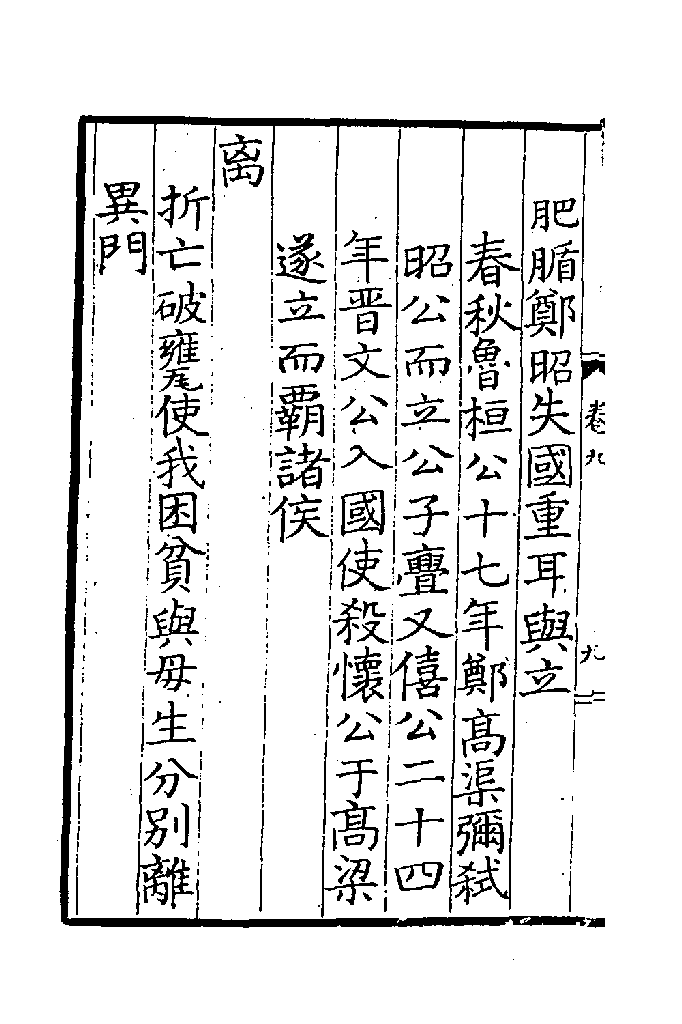 肥腯鄭昭失國重耳與立
春秋魯桓公十七年鄭髙渠彌弑
昭公而立公子亹又僖公二十四
年晋文公入國使殺懷公于髙梁
遂立而覇諸侯
离
折亡破甕使我困貧與母生分别離
異門
卷九
九